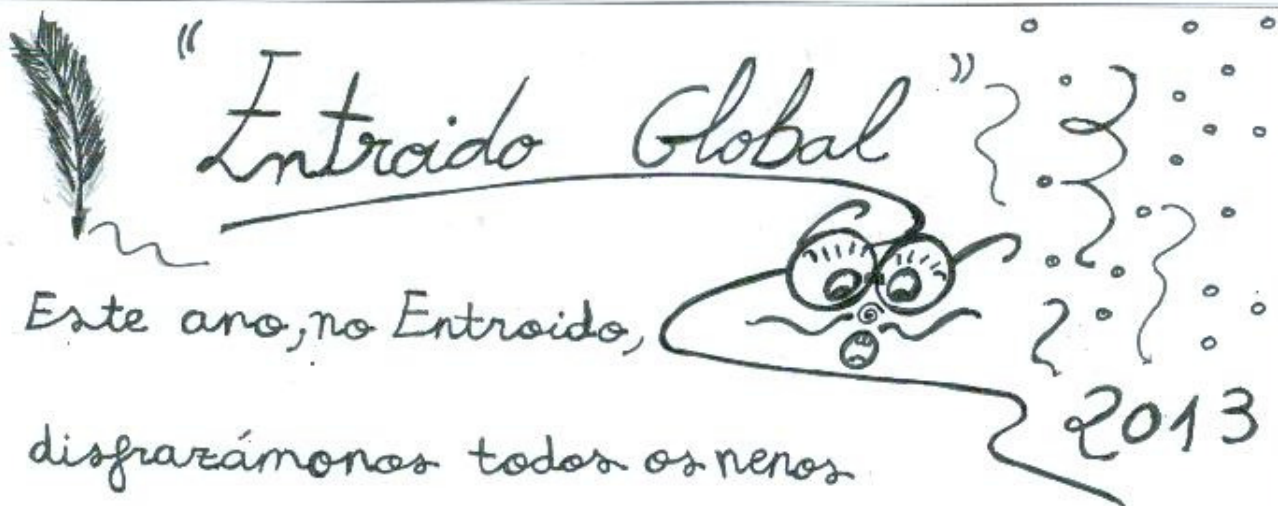 "Entroido Global"
Este ano, no Entroido,
2013
disfrazámonos todos os nenos